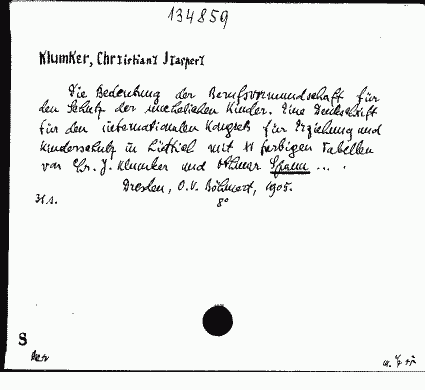 134859
Klumker, Chr[istian] J[asper]
Die Bedeutung der Berufsvormundschaft für
den Schutz der unehelichen Kinder. Eine Denkschrift
für den internationalen Kongreß für Erziehung und
Kinderschutz in Lüttich mit farbigen Tabellen
von Chr. J. Klumker und Othmar Spann ... .
Dresden, O.V. Böhmert, 1905.
31 S. 8°
S